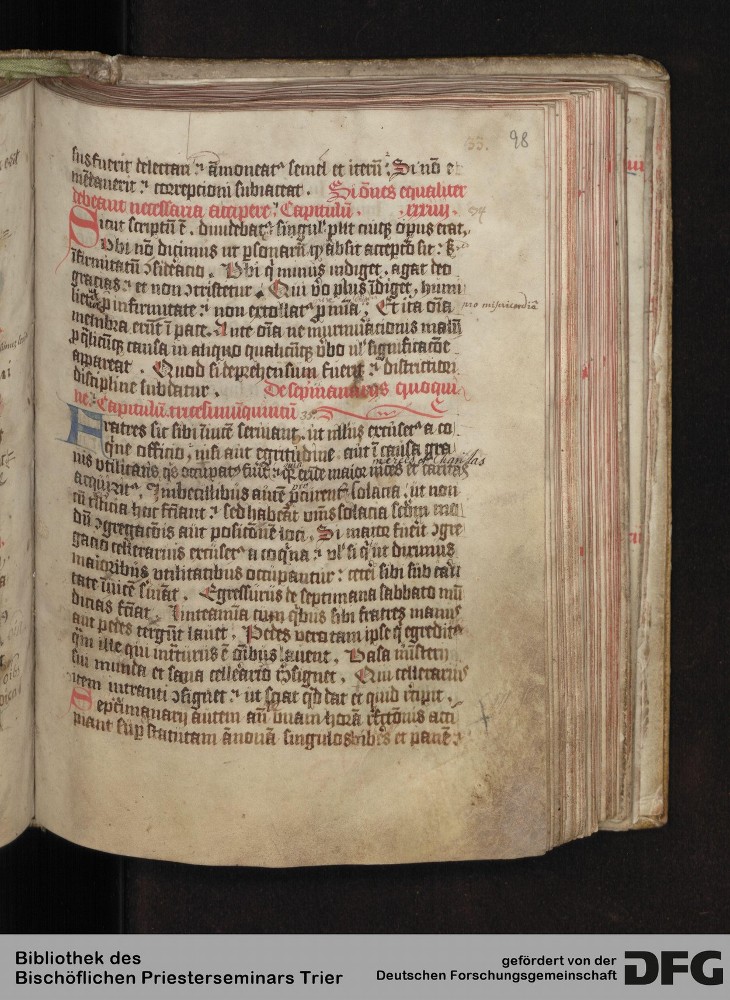 33. 98
sus fuerit delectari ⁊ āmoneat᷑ semel et iterū. Si nō e
mēdauerit ⁊ correptioni subiaceat. Si ōnes equaliter
debeant necessaria accipere. Capitulū. xxxiiij. 34
Sicut scriptū ē. diuidebat᷑ singul᷑ put cuiq; opus erat,
Vbi nō dicimus ut psonarū qd absit acceptō sit: s;
īfirmitatū ɔsideratio. Vbi q͛ minus indiget. agat deo
gracias ⁊ et non ɔtristetur. Qui v̄o plus īdiget, humi
liet᷑ p infirmitate ⁊ non extollat᷑ p mīa. Et ita oīa pro misericordiā
membra erūt ī pace. Ante oīa ne murmuracionis malū
p q̄licūq; causa in aliquo qualicūq; v̄bo ul᷑ significacōe
appareat. Quod si deprehensum fuerit ⁊ districtiori
discipline subdatur. De septimanarijs quoqui
ne. Capitulū. tricesimūquintū 35.
Fratres sic sibi īuicē seruiant. ut nllus excuset᷑ a co
q͛ne officio, nisi aut egritudine. aut ī causa gra
mercēs et charitas
uis vtilitatis q͛s occupat᷑ fu͛it. ⁊ q͛ exīde maior m͛ces et caritas
acquirit᷑. Imbecillibus autē pcurent᷑ solacia. ut non
cū tristicia hoc faciant ⁊ sed habeāt oms solacia scdm mo
dū ɔgregacōis aut posicōne loci. Si maior fuerit ɔgre
gacio cellerarius excuset᷑ a coq͛na ⁊ ul᷑ si q͛ ut diximus
maioribus vtilitatibus occupantur: ceteri sibi sub cari
tate īuicē s͛uiāt. Egressurus de septimana sabbato mū
dicias faciat. linteamīa cum q͛bus sibi fratres manus
aut pedes tergūt lauet. Pedes vero tam ipse q͛ egredit᷑
q͛m ille qui intraturus ē oībus lauent. Vasa ministerij
sui munda et sana cellerario ɔsignet. Qui cellerarius
item intranti ɔsignet ⁊ ut sciat qd dat et quid recipit.
Septimanarij autem añ vnam horā refectionis acci
piant sup statutam ānonā singulos bibēs et panē ⁊
Bibliothek des
Bischöflichen Priesterseminars Trier
gefördert von der
Deutschen Forschungsgemeinschaft
DFG